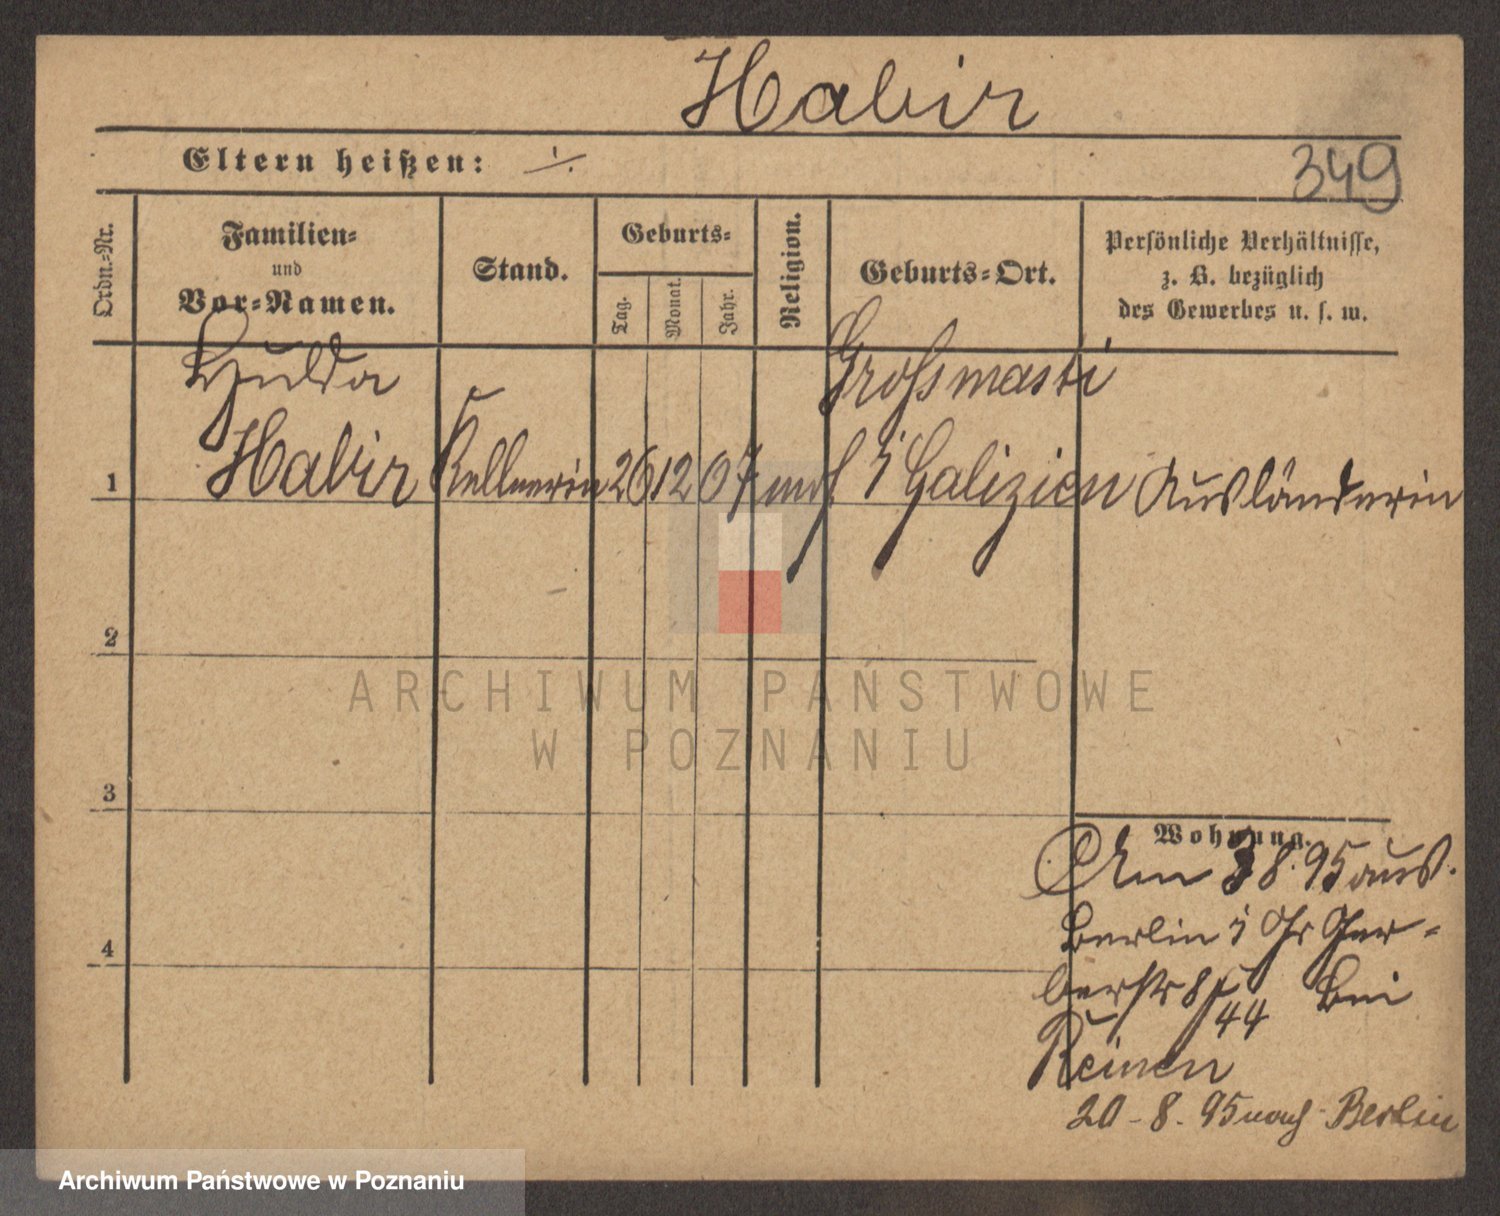 Habir
Eltern heißen: ·/.
349
Ordn.-Nr.
Familien-
und
Vor-Namen.
Stand.
Geburts-
Tag.
Monat.
Jahr.
Religion.
Geburts-Ort.
Persönliche Verhältnisse,
z. B. bezüglich
des Gewerbes u. s. w.
Hulda
Grossmasti
1 Habir Kellnerin 26 12 67 mos i Galizien Ausländerin
2
3
4
ARCHIWUM PAŃSTWOWE
W POZNANIU
Wohnung.
Am 3 8. 95 aus.
Berlin i Gr Ger-
berstr 8 44 bei
Reinen
20-8. 95 nach Berlin
Archiwum Państwowe w Poznaniu